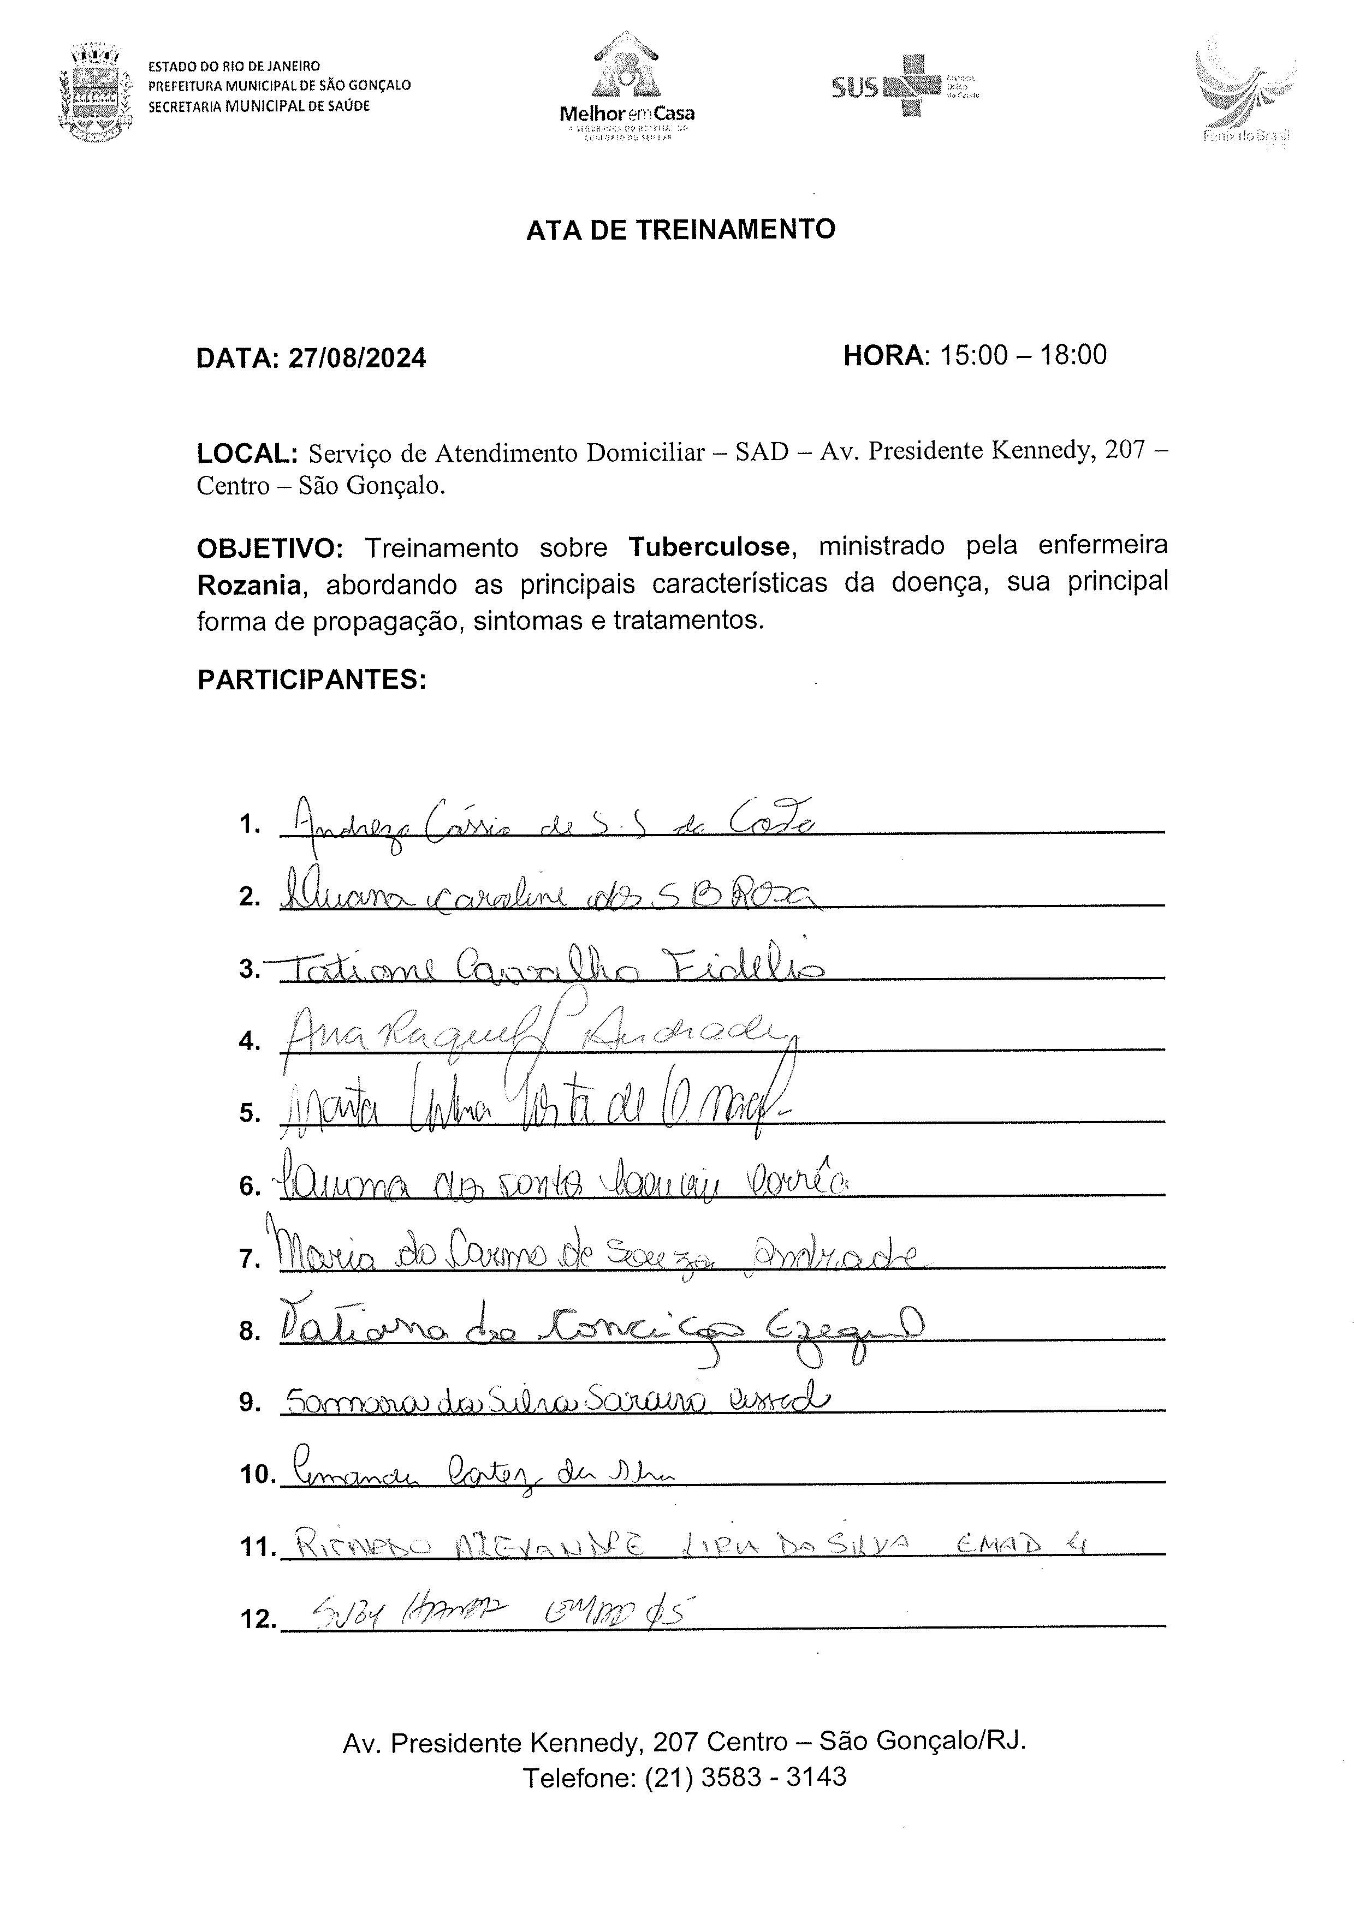 ESTADO DO RIO DE JANEIRO
PREFEITURA MUNICIPAL DE SÃO GONÇALO
SECRETARIA MUNICIPAL DE SAÚDE
Melhor em Casa
A SEGURANÇA DO HOSPITAL NO
CONFORTO DO SEU LAR
SUS
Fenix do Brasil
ATA DE TREINAMENTO
DATA: 27/08/2024 HORA: 15:00 – 18:00
LOCAL: Serviço de Atendimento Domiciliar – SAD – Av. Presidente Kennedy, 207 –
Centro – São Gonçalo.
OBJETIVO: Treinamento sobre Tuberculose, ministrado pela enfermeira
Rozania, abordando as principais características da doença, sua principal
forma de propagação, sintomas e tratamentos.
PARTICIPANTES:
1. Andreza Cássia de S. S da Costa
2. Caroline dos S B Rosa
3. Tatiane Carvalho Fidelis
4. Ana Raquel Andrade
5. Marta Costa de O.
6. dos Santos Corrêa
7. Maria do Carmo de Souza Andrade
8. Tatiana da Conceição Ezequiel
9. Samara da Silva Saraiva
10. Cortez da Silva
11. RICARDO ALEXANDRE DA SILVA EMAD 4
12. EMAD 05
Av. Presidente Kennedy, 207 Centro – São Gonçalo/RJ.
Telefone: (21) 3583 - 3143